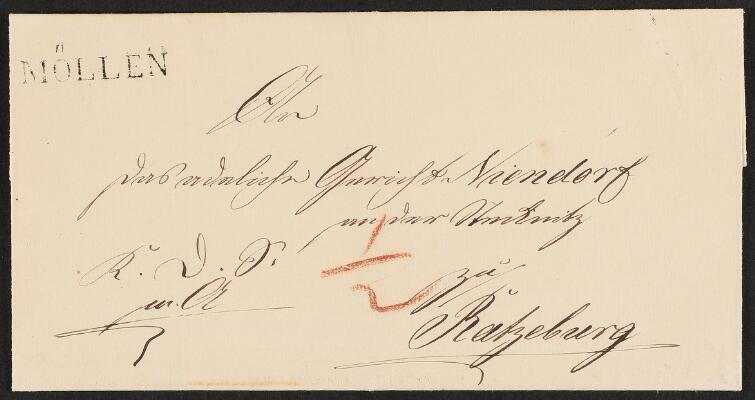 MÖLLEN
An
das adeliche Gericht Niendorf
an der Stecknitz
K. D. S.
zu
m. A
Ratzeburg
1/2